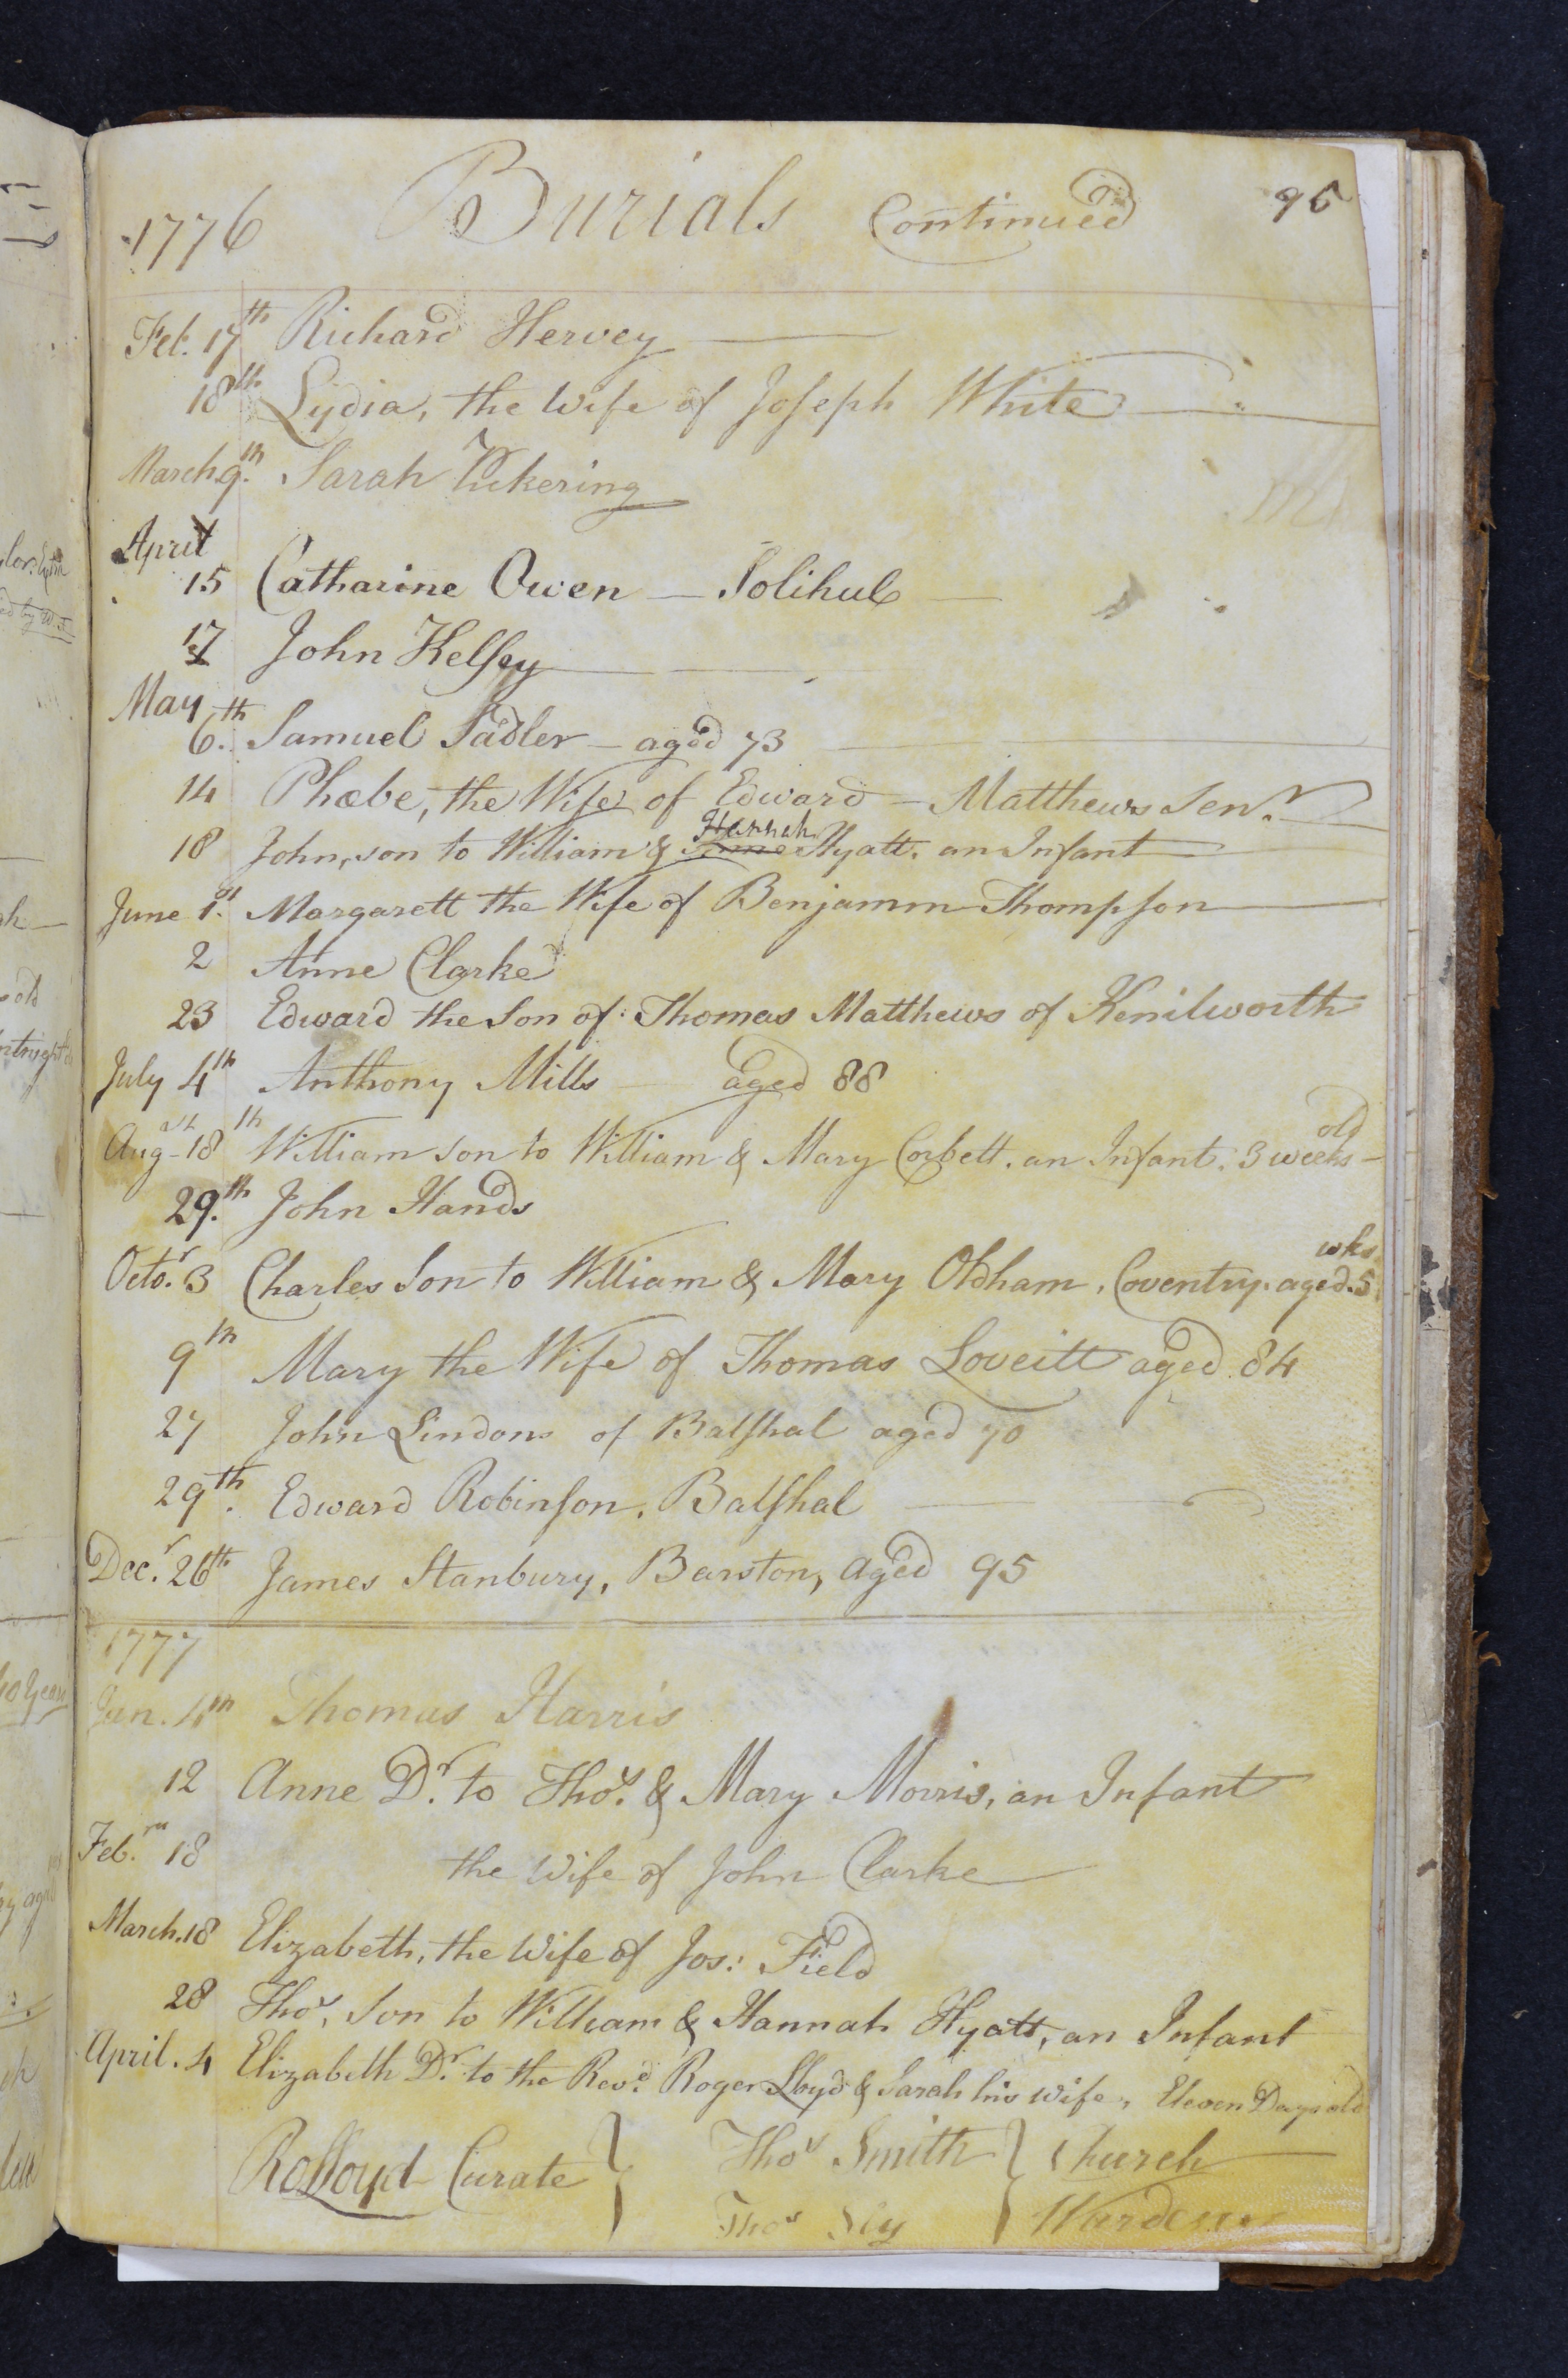 1776 Burials Continued 95
Feb. 17th Richard Hervey
18th Lydia, the Wife of Joseph White
March 9th Sarah Pickering
April
15 Catharine Owen — Solihul
17 John Kelsey
May
6th Samuel Sadler — aged 73
14 Phœbe, the Wife of Edward — Matthews Senr.
Hannah
18 John, son to William & Hyatt. an Infant
June 1st Margarett the Wife of Benjamin Thompson
2 Anne Clarke
23 Edward the Son of Thomas Matthews of Kenilworth
July 4th Anthony Mills aged 88
old
Augst 18th William son to William & Mary Corbett. an Infant. 3 weeks
29.th John Hands
wks
Octor. 3 Charles Son to William & Mary Oldham, Coventry. aged. 5
9th Mary the Wife of Thomas Loveitt aged 84
27 John Lindons of Balshal aged 70
29th. Edward Robinson, Balshal
Decr. 26th James Stanbury, Barston, aged 95
1777
Jan. 4th Thomas Harris
12 Anne Dr. to Thos. & Mary Morris, an Infant
Feb.ry 18 the Wife of John Clarke
March. 18 Elizabeth, the Wife of Jos: Field
28 Thos, Son to William & Hannah Hyatt, an Infant
April. 4 Elizabeth Dr. to the Revd. Roger Lloyd & Sarah his Wife, Eleven Days old
Ro Lloyd Curate } Thos Smith } Church
Thos Sly } Wardens